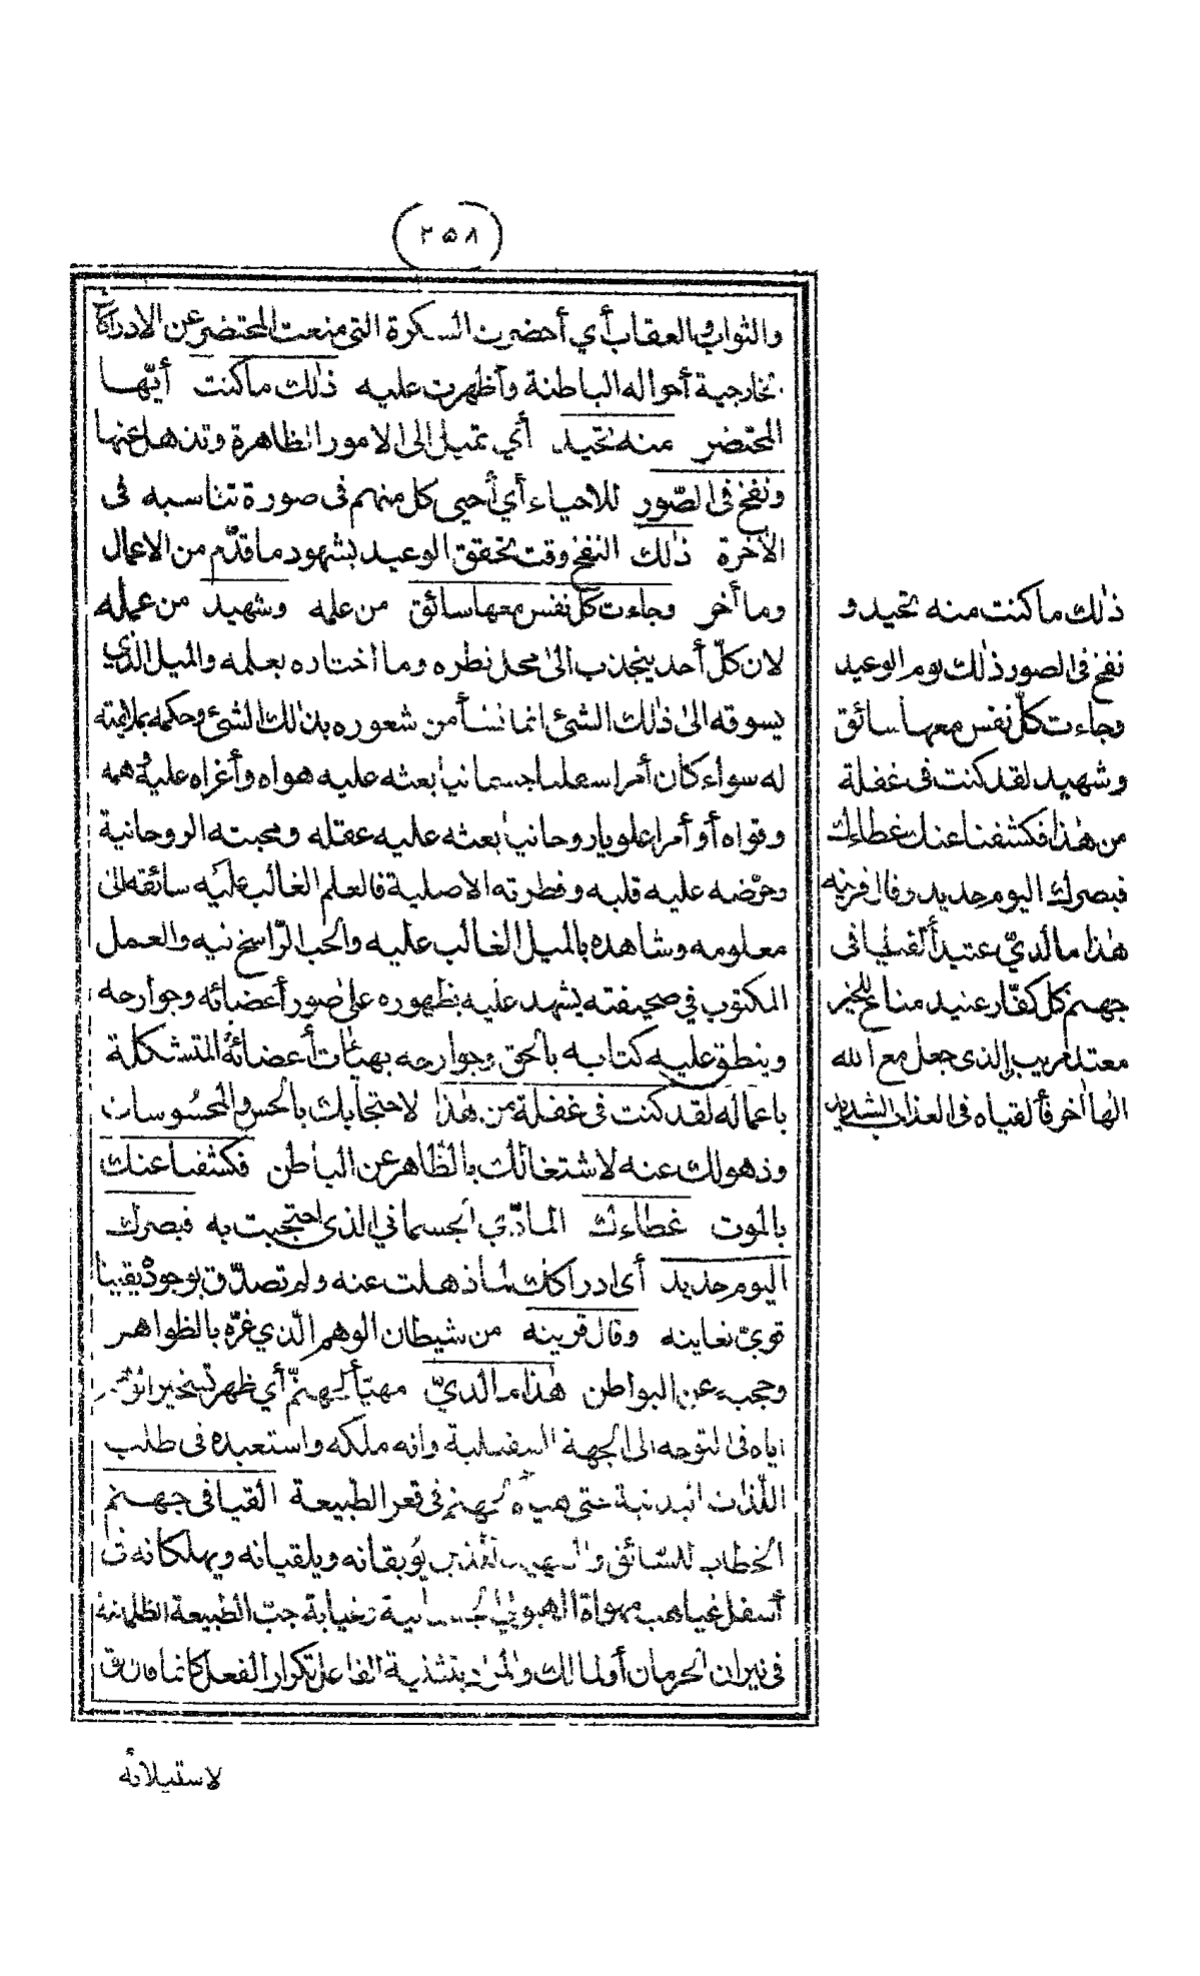 ٢٥٨
والثواب والعقاب أي أحضرت السكرة التي منعت المحتضر عن الادراكات
الخارجية أحواله الباطنة وأظهرت عليه ذلك ما كنت أيّها
المحتضر منه تحيد أي تميل إلى الامور الظاهرة وتذهل عنها
ونفخ في الصّور للاحياء أي أحيى كل منهم في صورة تناسبه في
الآخرة ذلك النفخ وقت تحقق الوعيد بشهود ما قدّم من الاعمال
وما أخر وجاءت كلّ نفس معها سائق من علمه وشهيد من عمله
لان كلّ أحد ينجذب الى محل نظره وما اختاره بعلمه والميل الذي
يسوقه الى ذلك الشئ انما نشأ من شعوره بذلك الشئ وحكمه بملايمته
له سواء كان أمرا سفليا جسمانيا بعثه عليه هواه وأغراه عليه وهمه
وقواه أو أمرا علويا روحانيا بعثه عليه عقله ومحبته الروحانية
وحرّضه عليه قلبه وفطرته الاصلية فالعلم الغالب عليه سائقه الى
معلومه وشاهده بالميل الغالب عليه والحب الرّاسخ فيه والعمل
المكتوب في صحيفته يشهد عليه بظهوره على صور أعضائه وجوارحه
وينطق عليه كتابه بالحق وجوارحه بهيئات أعضائه المتشكلة
باعماله لقد كنت في غفلة من هذا لاحتجابك بالحس والمحسوسات
وذهولك عنه لاشتغالك بالظاهر عن الباطن فكشفنا عنك
بالموت غطاءك المادّي الجسماني الذي احتجبت به فبصرك
اليوم حديد أي ادراكك لما ذهلت عنه ولم تصدّق بوجوده يقينا
قويّ تعاينه وقال قرينه من شيطان الوهم الّذي غرّه بالظواهر
وحجبه عن البواطن هذا ما لديّ مهيّأ لجهنّم أي ظهر تسخير
اياه في التوجه الى الجهة السفلية وانه ملكه واستعبده في طلب
اللّذات البدنية حتى هيأه لجهنم في قعر الطّبيعة القيا في جهنم
الخطاب للسّائق والشهيد اللّذين يُوبقانه ويلقيانه ويهلكانه في
أسفل غياهب مهواة الهيولى الجسمانية وغيابة جبّ الطّبيعة الظلمانية
في نيران الحرمان أو لمالك والمراد بتثنية الفاعل تكرار الفعل كانما قال ق
لاستيلائه
ذلك ما كنت منه تحيد و
نفخ في الصور ذلك يوم الوعيد
وجاءت كلّ نفس معها سائق
وشهيد لقد كنت في غفلة
من هذا فكشفنا عنك غطاءك
فبصرك اليوم حديد وقال قرينه
هذا ما لديّ عتيد ألقيا في
جهنم كل كفّار عنيد مناع للخير
معتد مريب الذي جعل مع الله
الها آخر فألقياه في العذاب الشديد